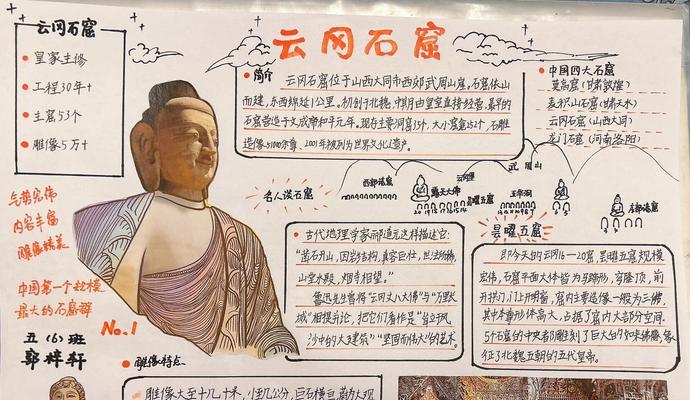 云冈石窟
云冈石窟
皇家主修
工程30年+
主窟53个
雕像5万+
简介
云冈石窟位于山西大同市西郊武周山崖,石窟依山
而建,东西绵延1公里。初创于北魏,中期由皇室直接经营,最早的
石窟营造于文成帝和平元年。现存主要洞窟
造像51000余尊,2001年被列为世界文化遗产。
中国四大石窟
莫高窟(甘肃敦煌)
麦积山石窟(甘肃天水)
云冈石窟(山西大同)
龙门石窟(河南洛阳)
武周山
西部诸窟
露天大佛
云冈堡
昙曜五窟
五华洞
东部诸窟
20 19
气势宏伟
内容丰富
雕像精美
中国第一个
最大的石窟群
No.1
五(6)班
郭梓轩
名人谈石窟
古代地理学家郦道元这样描述它:
“凿石开山,因岩结构,真容巨壮,世法所
山堂水殿,烟寺相望。”
鲁迅先生曾将“云冈丈八大佛”与“万里长
城”相提并论,把它们看作是
大的艺术
昙曜五窟
即今天的云冈16—20窟,昙曜五窟规模
宏伟,石窟平面大体皆为马蹄形,穹隆顶,前
开拱门,门上开明窗,窟内主要造像一般为三佛,
其中本尊形体高大,占据了窟内大部分空间。
5个石窟的中央都雕刻了巨大的如来佛像,象
征了北魏五朝的五代皇帝。
雕像特点
雕像大至十几米,小至几公分,巨石横亘,蔚为大观